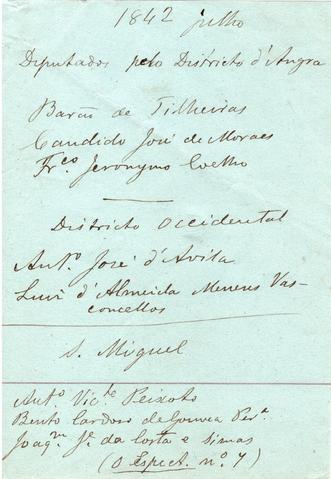 1842 julho
Deputados pelo Districto d'Angra
Barão de Tilheiras
Candido José de Moraes
Frco Jeronymo Coelho
Districto Occidental
Anto. José d'Avila
Luiz d'Almeida Menezes Vas-
concellos
S. Miguel
Anto Victe Peixoto
Bento Cardoso de Gouvea Pera
Joaqm Je da Costa e Simas
(O Espect. nº 7)